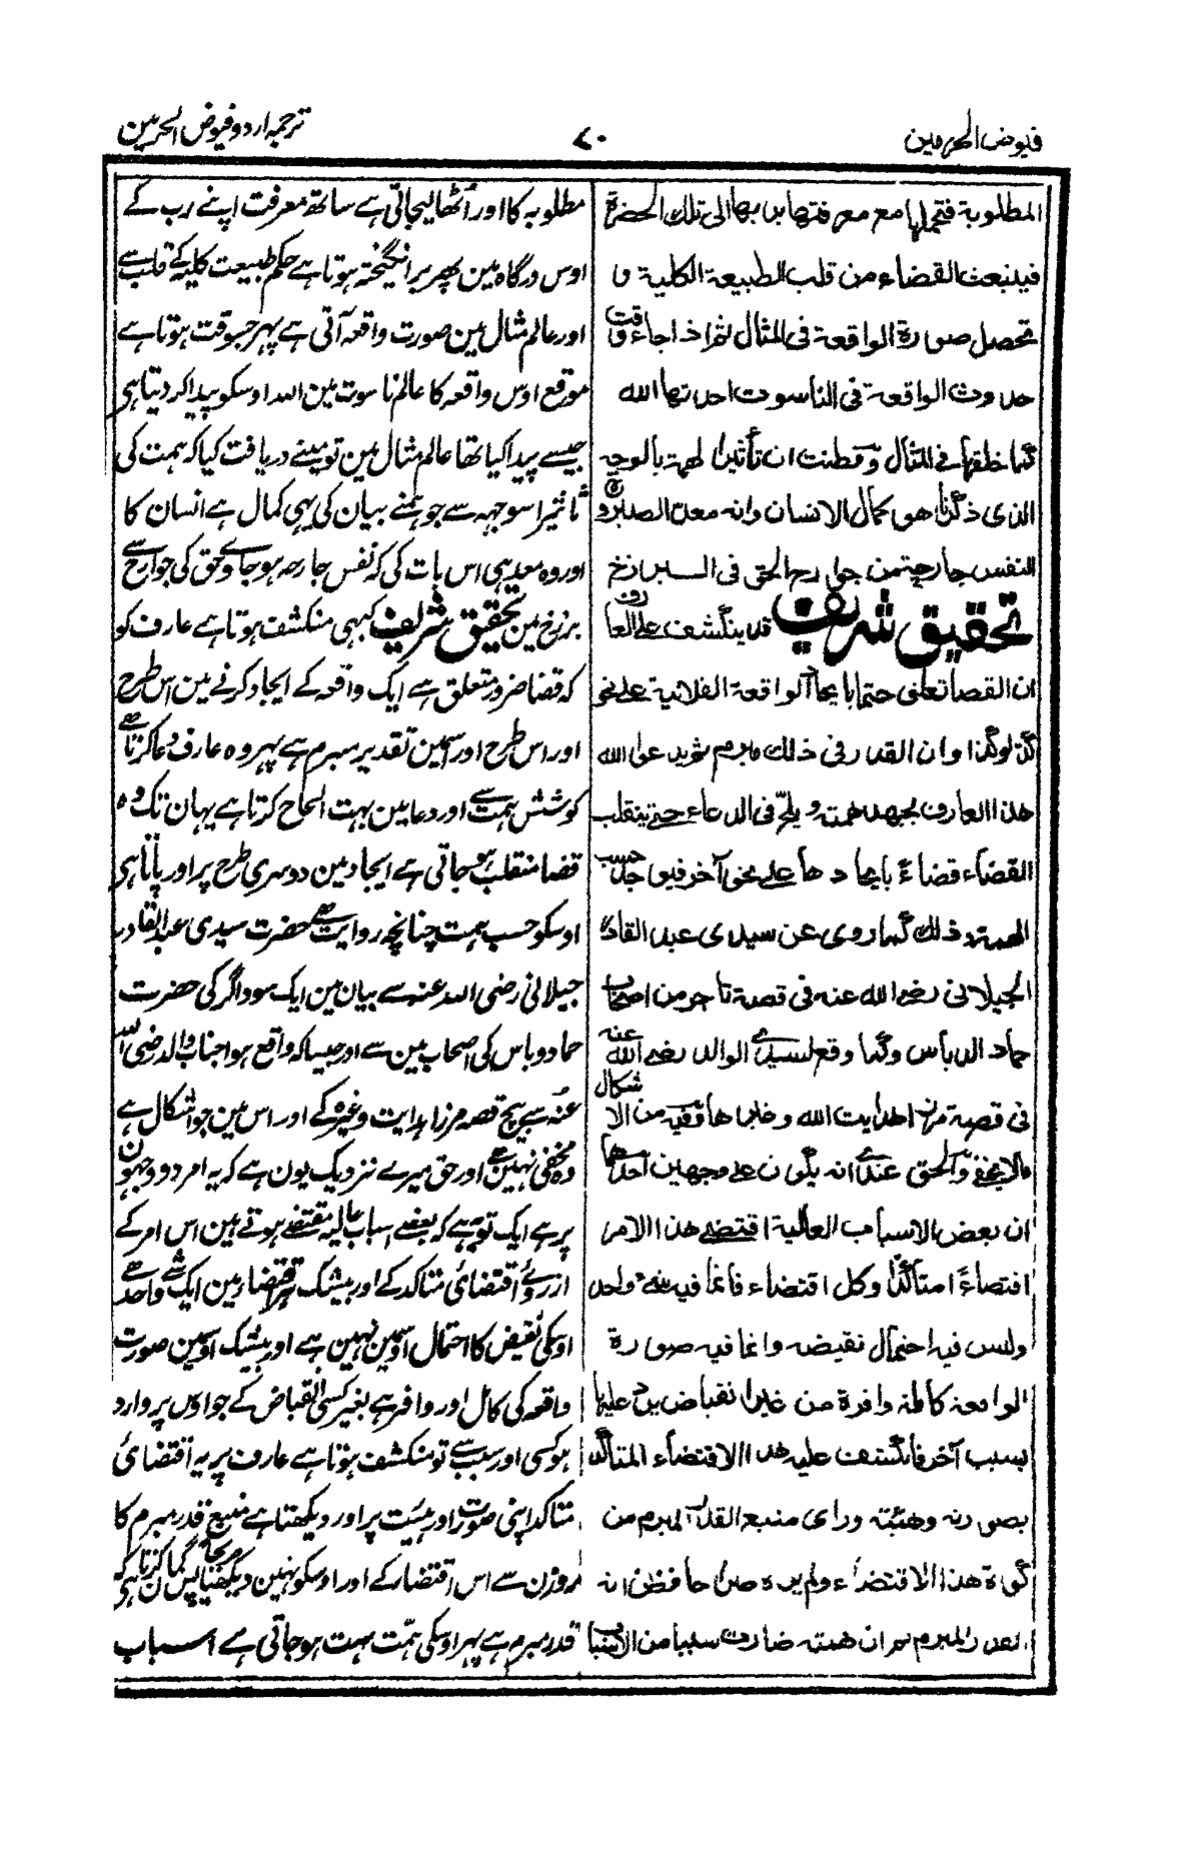 فیوض الحرمین
۷۰
ترجمہ اردو فیوض الحرمین
المطلوبة فتحملها مع معرفتها بربها الى تلك الحضرة
فينبعث القضاء من قلب الطبيعة الكلية و
تحصل صورة الواقعة فى المثال ثم اذا جاء وقت
حدوث الواقعة فى الناسوت احدثها الله
كما خلقها فى المثال وفطنت ان تأثير الهمة بالوجه
الذى ذكرنا هو كمال الانسان وانه معد لصيرورة
النفس جارحة من جوارح الحق فى البرازخ
تحقیق شریف قد ينكشف على العارف
ان القضا تعلق حتما بايجاد الواقعة الفلانية على نحو
كذا وكذا وان القدر فى ذلك مبرم ثم يدعوا الله
هذا العارف بجهد همته ويلحّ فى الدعاء حتى ينقلب
القضاء قضاءً بايجادها على نحو آخر فيوجد حسب
الهمة وذلك كما روى عن سيدى عبد القادر
الجيلانى رضى الله عنه فى قصة تاجر من اصحاب
حماد الدباس وكما وقع لسيدى الوالد رضى الله عنه
فى قصة مرزا هدايت الله وغيرها وفيه من الاشكال
مالا يخفى والحق عندى انه يكون على وجهين احدهما
ان بعض الاسباب العالية اقتضى هذا الامر
اقتضاءً متأكدا وكل اقتضاء فانما فيه شئ واحد
وليس فيه احتمال نقيضه وانما فيه صورة
الواقعة كاملة وافرة من غير انقباض يرد عليها
بسبب آخر فانكشف عليه هذا الاقتضاء المتأكد
بصورته وهيئته وراى منبع القدر المبرم من
كوة هذا الاقتضاء ولم يره صراحا فظن انه
القدر المبرم ثم ان همته صارت سببا من الاسباب
مطلوبہ کا اور اُٹھا لیجاتی ہے ساتھ معرفت اپنے رب کے
اوس درگاہ مین پھر برانگیختہ ہوتا ہے حکم طبیعت کلیہ کے قلب سے
اور عالم مثال مین صورت واقعہ آتی ہے پہر جسوقت ہوتا ہے
موقع اوس واقعہ کا عالم ناسوت مین اللہ اوسکو پیدا کر دیتا ہی
جیسے پیدا کیا تھا عالم مثال مین تو مینے دریافت کیا کہ ہمت کی
تاثیر اسوجہہ سے جو ہمنے بیان کی یہی کمال ہے انسان کا
اور وہ معد ہی اس بات کی کہ نفس جارحہ ہو جاوے حق کی جوارح سے
برزخ مین تحقیق شریف کبہی منکشف ہوتا ہے عارف کو
کہ قضا ضرور متعلق ہے ایک واقعہ کے ایجاد کرنے مین اس طرح
اور اس طرح اور اسمین تقدیر مبرم ہے پہر وہ عارف دعا کرتا ہے
کوشش ہمت سے اور دعا مین بہت الحاح کرتا ہے یہان تک وہ
قضا منقلب ہو جاتی ہے ایجاد مین دوسری طرح پر اور پاتا ہی
اوسکو حسب ہمت چنانچہ روایت ہے حضرت سیدی عبد القادر
جیلانی رضی اللہ عنہ سے بیان مین ایک سوداگر کی حضرت
حماد دباس کی اصحاب مین سے اور جیسا کہ واقع ہوا جناب والد رضی اللہ
عنہ سے بیچ قصہ مرزا ہدایت وغیرہ کے اور اس مین جو اشکال ہے
وہ مخفی نہین ہے اور حق میرے نزدیک یون ہے کہ یہ امر دو وجہون
پر ہے ایک تو یہ ہے کہ بعضے اسباب عالیہ مقتضے ہوتے ہین اس امر کے
ازروئے اقتضائی متاکد کے اور بیشک ہر اقتضا مین ایک شے واحد ہے
اوسکی نقیض کا احتمال اوسمین نہین ہے اور بیشک اوسمین صورت
واقعہ کی کامل اور وافر ہے بغیر کسی انقباض کے جو اوس پر وارد
ہو کسی اور سبب سے تو منکشف ہوتا ہے عارف پر یہ اقتضائی
متاکد اپنی صورت اور ہیئت پر اور دیکھتا ہے منبع قدر مبرم کا
روزن سے اس اقتضار کے اور اوسکو نہین دیکھتا صریحاً پس گمان کرتا ہی کہ
قدر مبرم ہے پہر اوسکی ہمّت بہت ہو جاتی ہے اسباب